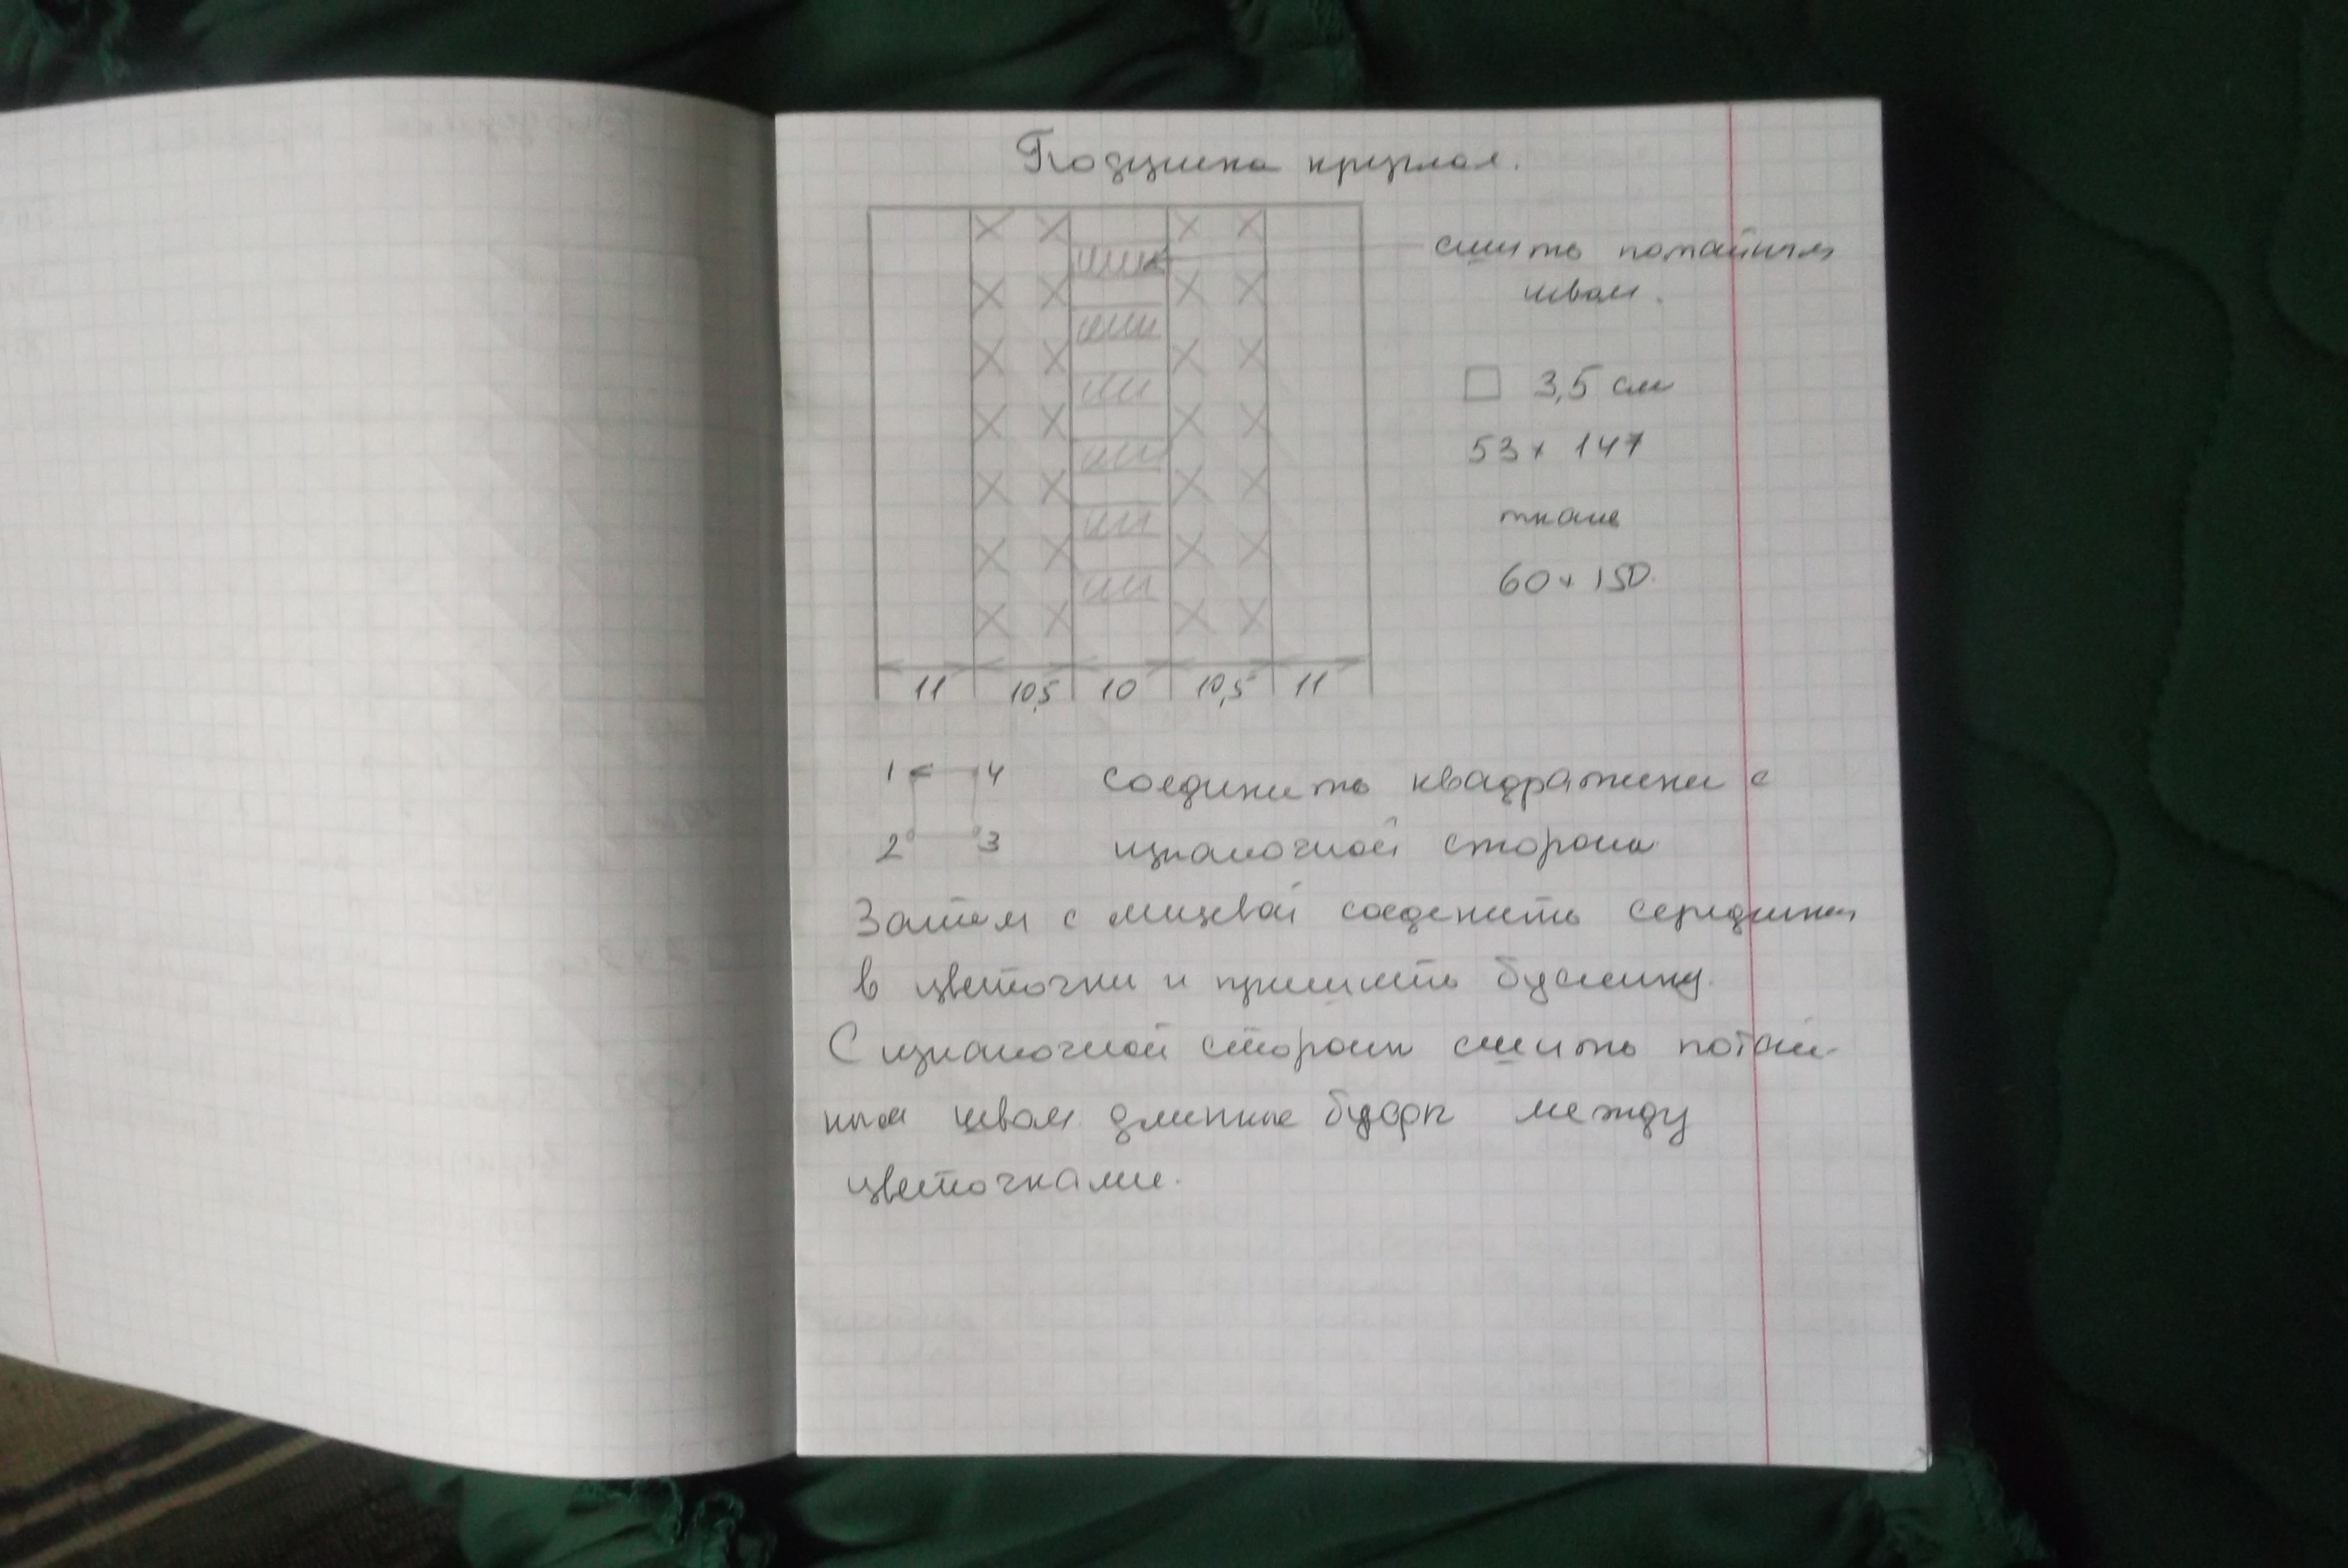 Подушка круглая.
сшить потайным
швом.
□ 3,5 см
53 х 147
ткань
60 х 150.
11 10,5 10 10,5 11
1 4
2 3
соединить квадратики с
изнаночной стороны
Затем с лицевой соеденить серединки
в цветочки и пришить бусинку.
С изнаночной стороны сшить потай-
ным швом длинные буфы между
цветочками.